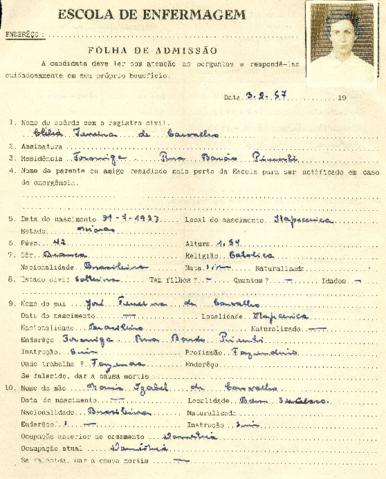 ESCOLA DE ENFERMAGEM
ENDERÊÇO:
FÔLHA DE ADMISSÃO
A candidata deve ler com atenção as perguntas e respondê-las
cuidadosamente em seu próprio benefício.
Data 3-2-57 19
1. Nome de acôrdo com o registro civil.
Clélia Ferreira de Carvalho
2. Assinatura
3. Residência Formiga Rua Barão Piumhi
4. Nome de parente ou amigo residindo mais perto da Escola para ser notificado em caso
de emergência.
5. Data do nascimento Local do nascimento Itapecerica
Estado Minas
6. Pêso. 42 Altura 1,54
7. Côr. Branca Religião Católica
Nacionalidade Brasileira Nata. sim Naturalizada
8. Estado civil Solteira Tem filhos? - Quantos? - Idades -
9. Nome do pai José Ferreira de Carvalho
Data do nascimento — Localidade Itapecerica
Nacionalidade Brasileiro Naturalizado —
Enderêço Formiga Rua Barão Piumhi
Instrução. Profissão. Fazendeiro
Onde trabalha? Fazenda Enderêço.
Se falecido, dar a causa mortis
10. Nome da mãe Maria Izabel de Carvalho
Data do nascimento — Localidade. Bom Sucesso.
Nacionalidade. Brasileira Naturalizada
Enderêço. — Instrução
Ocupação anterior ao casamento Doméstica
Ocupação atual Doméstica
Se falecida, dar a causa mortis —